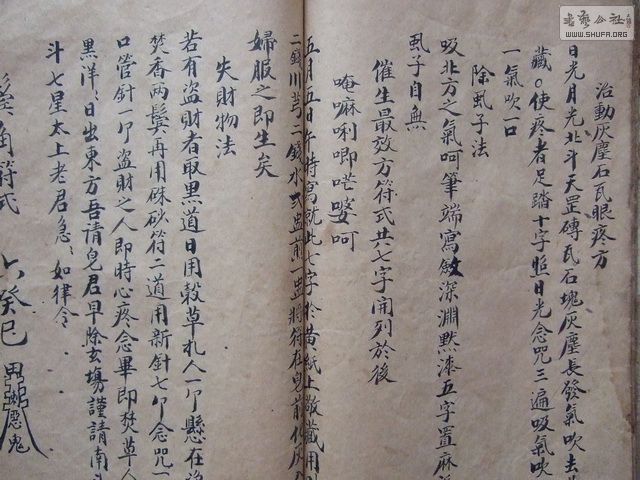 治動灰塵石瓦眼疼方
日光月光北斗天罡磚瓦石塊灰塵長發氣吹去
藏。使疼者足踏十字照日光念咒三遍吸氣吹
一氣吹一口
除虱子法
吸北方之氣呵筆端寫敏深淵默漆五字置麻
虱子自無
催生最效方符式共七字開列於後
唵嘛唎唧吂婆呵
五月五日午時寫就此七字於黄紙上敬藏用
二錢川芎二錢水 盅煎一盅將符在 前化灰
婦服之即生矣
失財物法
若有盜財者取黑道日用穀草札人一个懸在
焚香两鬓再用硃砂符二道用新針七个念咒一
口管針一个盜財之人即時心疼念畢即焚草人
黑洋洋日出東方吾請皂君早除玄塲謹請南
斗七星太上老君急急如律令
角符式
六癸巳 鬼
書藝公社
WWW.SHUFA.ORG